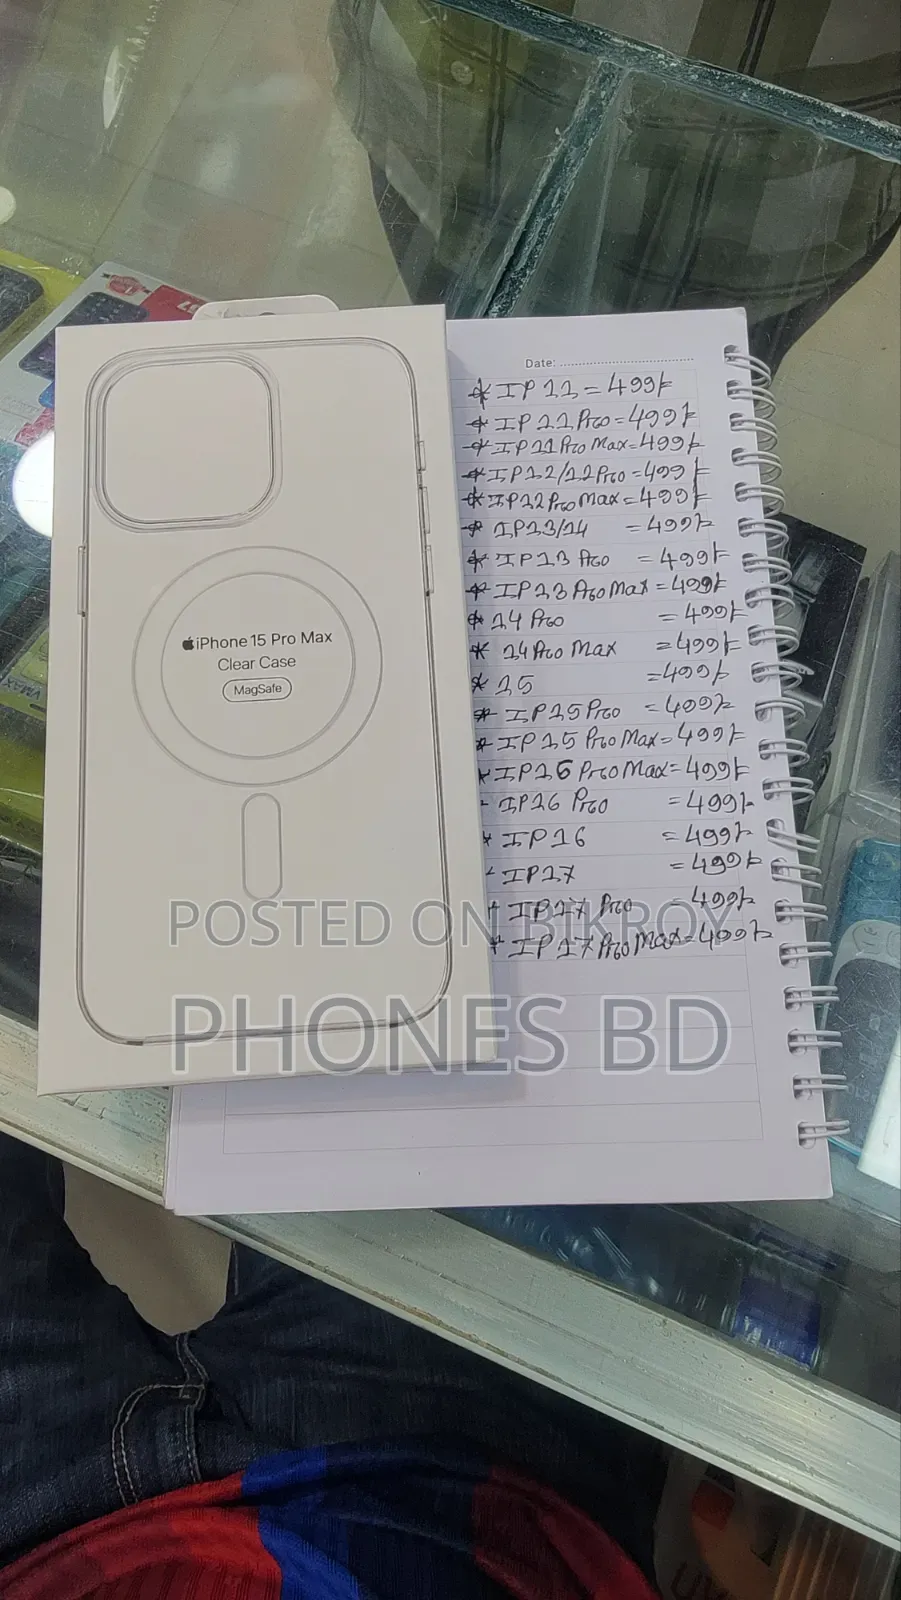 iPhone 15 Pro Max
Clear Case
MagSafe
Date:
* IP 11 = 499/-
* IP 11 Pro = 499/-
* IP 11 Pro Max = 499/-
* IP 12/12 Pro = 499/-
* IP 12 Pro Max = 499/-
* IP 13/14 = 499/-
* IP 13 Pro = 499/-
* IP 13 Pro Max = 499/-
* 14 Pro = 499/-
* 14 Pro Max = 499/-
* 15 = 499/-
* IP 15 Pro = 499/-
* IP 15 Pro Max = 499/-
* IP 16 Pro Max = 499/-
- IP 16 Pro = 499/-
* IP 16 = 499/-
- IP 17 = 499/-
+ IP 17 Pro = 499/-
* IP 17 Pro Max = 499/-
POSTED ON BIKROY
PHONES BD